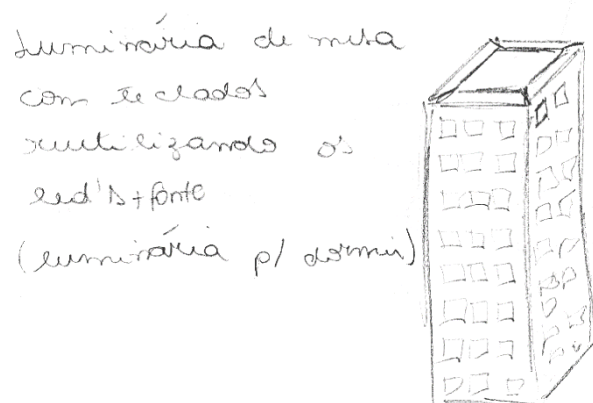 Luminária de mesa
com teclados
reutilizando os
led's + fonte
(luminária p/ dormir)